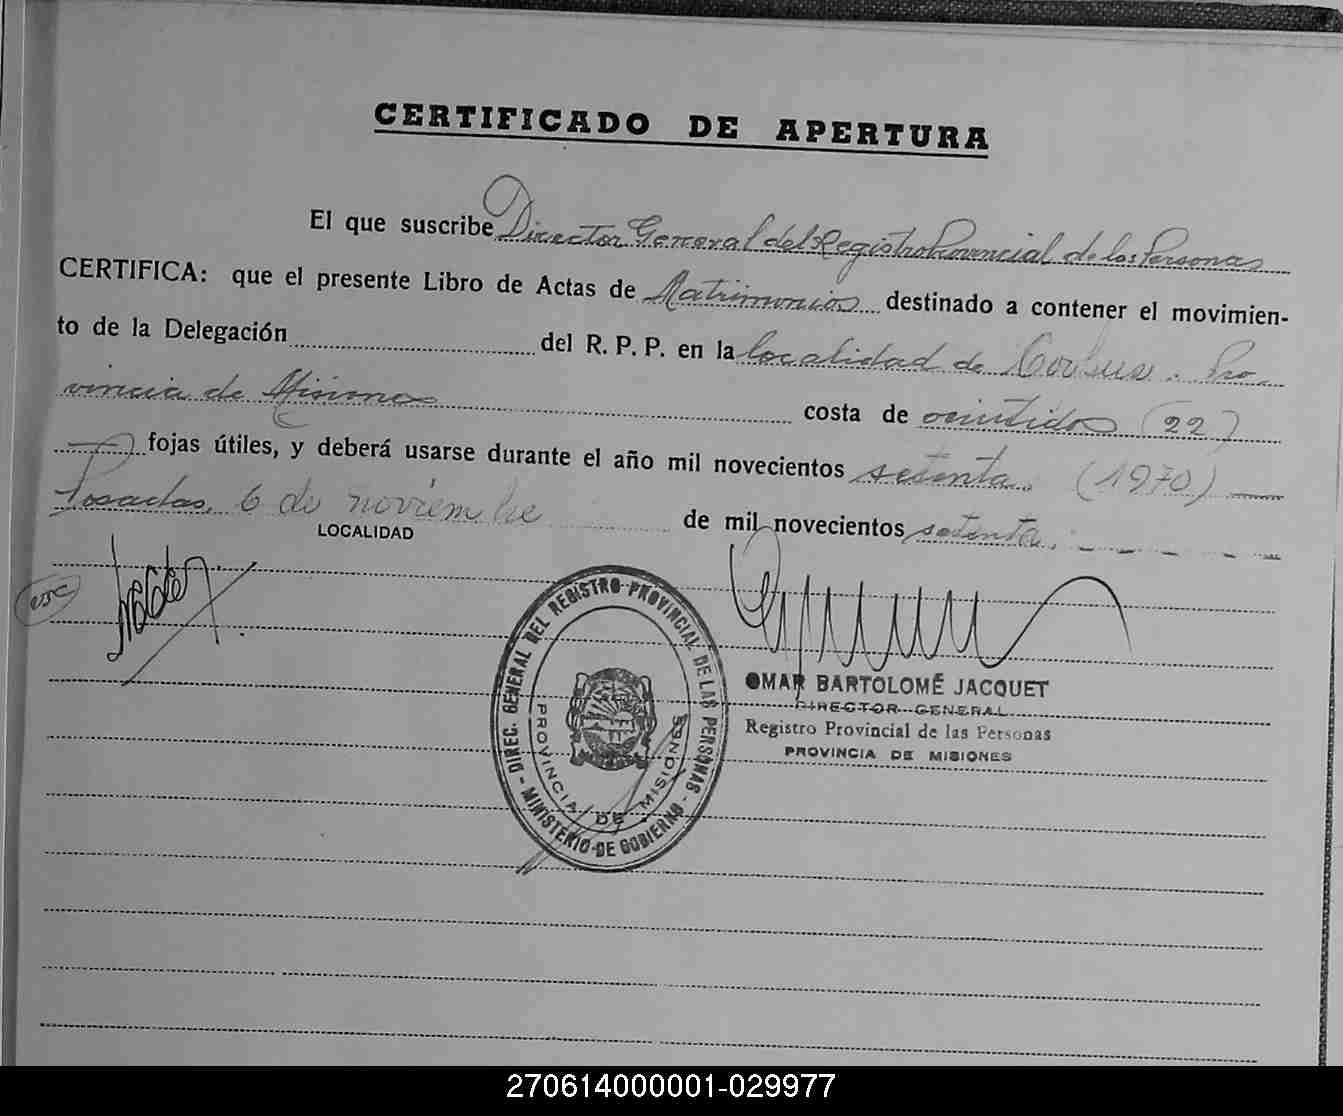 CERTIFICADO DE APERTURA
El que suscribe Director General del Registro Provincial de las Personas
CERTIFICA: que el presente Libro de Actas de Matrimonios destinado a contener el movimien-
to de la Delegación del R. P. P. en la localidad de Corpus. Pro-
vincia de Misiones costa de veintidos (22)
fojas útiles, y deberá usarse durante el año mil novecientos setenta (1970)
Posadas, 6 de noviembre de mil novecientos setenta.
LOCALIDAD
DIREC. GENERAL DEL REGISTRO PROVINCIAL DE LAS PERSONAS - MINISTERIO DE GOBIERNO -
PROVINCIA DE MISIONES
OMAR BARTOLOMÉ JACQUET
DIRECTOR GENERAL
Registro Provincial de las Personas
PROVINCIA DE MISIONES
270614000001-029977